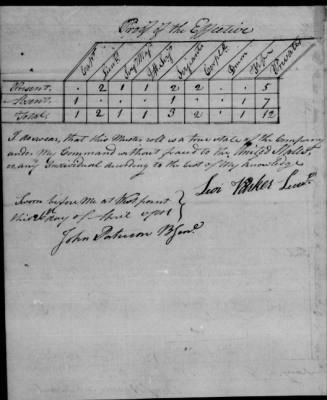 Proof of the Effective
Capt Lieut Serj Maj Sergeants Corpls Drum Fife Privates
Present . 2 1 1 2 2 . . 5
Absent 1 . . . 1 . . 1 7
Total 1 2 1 1 3 2 . 1 12
I do swear, that this Muster roll is a true state of the Company
under My Command without fraud to the United States or
to any Individual according to the best of My knowledge
Levi Parker Lieut.
Sworn before Me at West point
this day of April 1781
John Paterson B Genl.